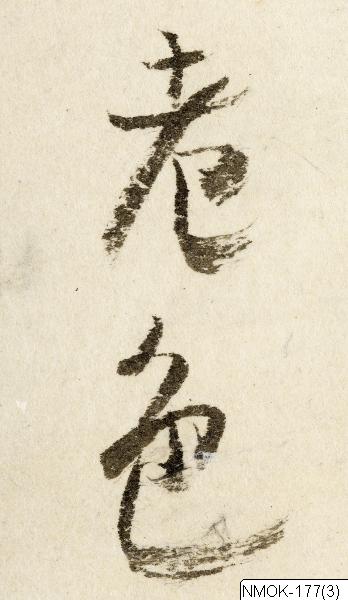 老色
NMOK-177(3)